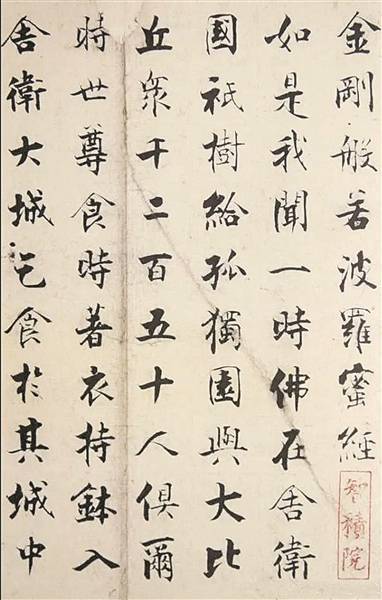 金剛般若波羅蜜經
智積院
如是我聞一時佛在舍衛
國祇樹給孤獨園與大比
丘眾千二百五十人俱爾
時世尊食時著衣持鉢入
舍衛大城乞食於其城中